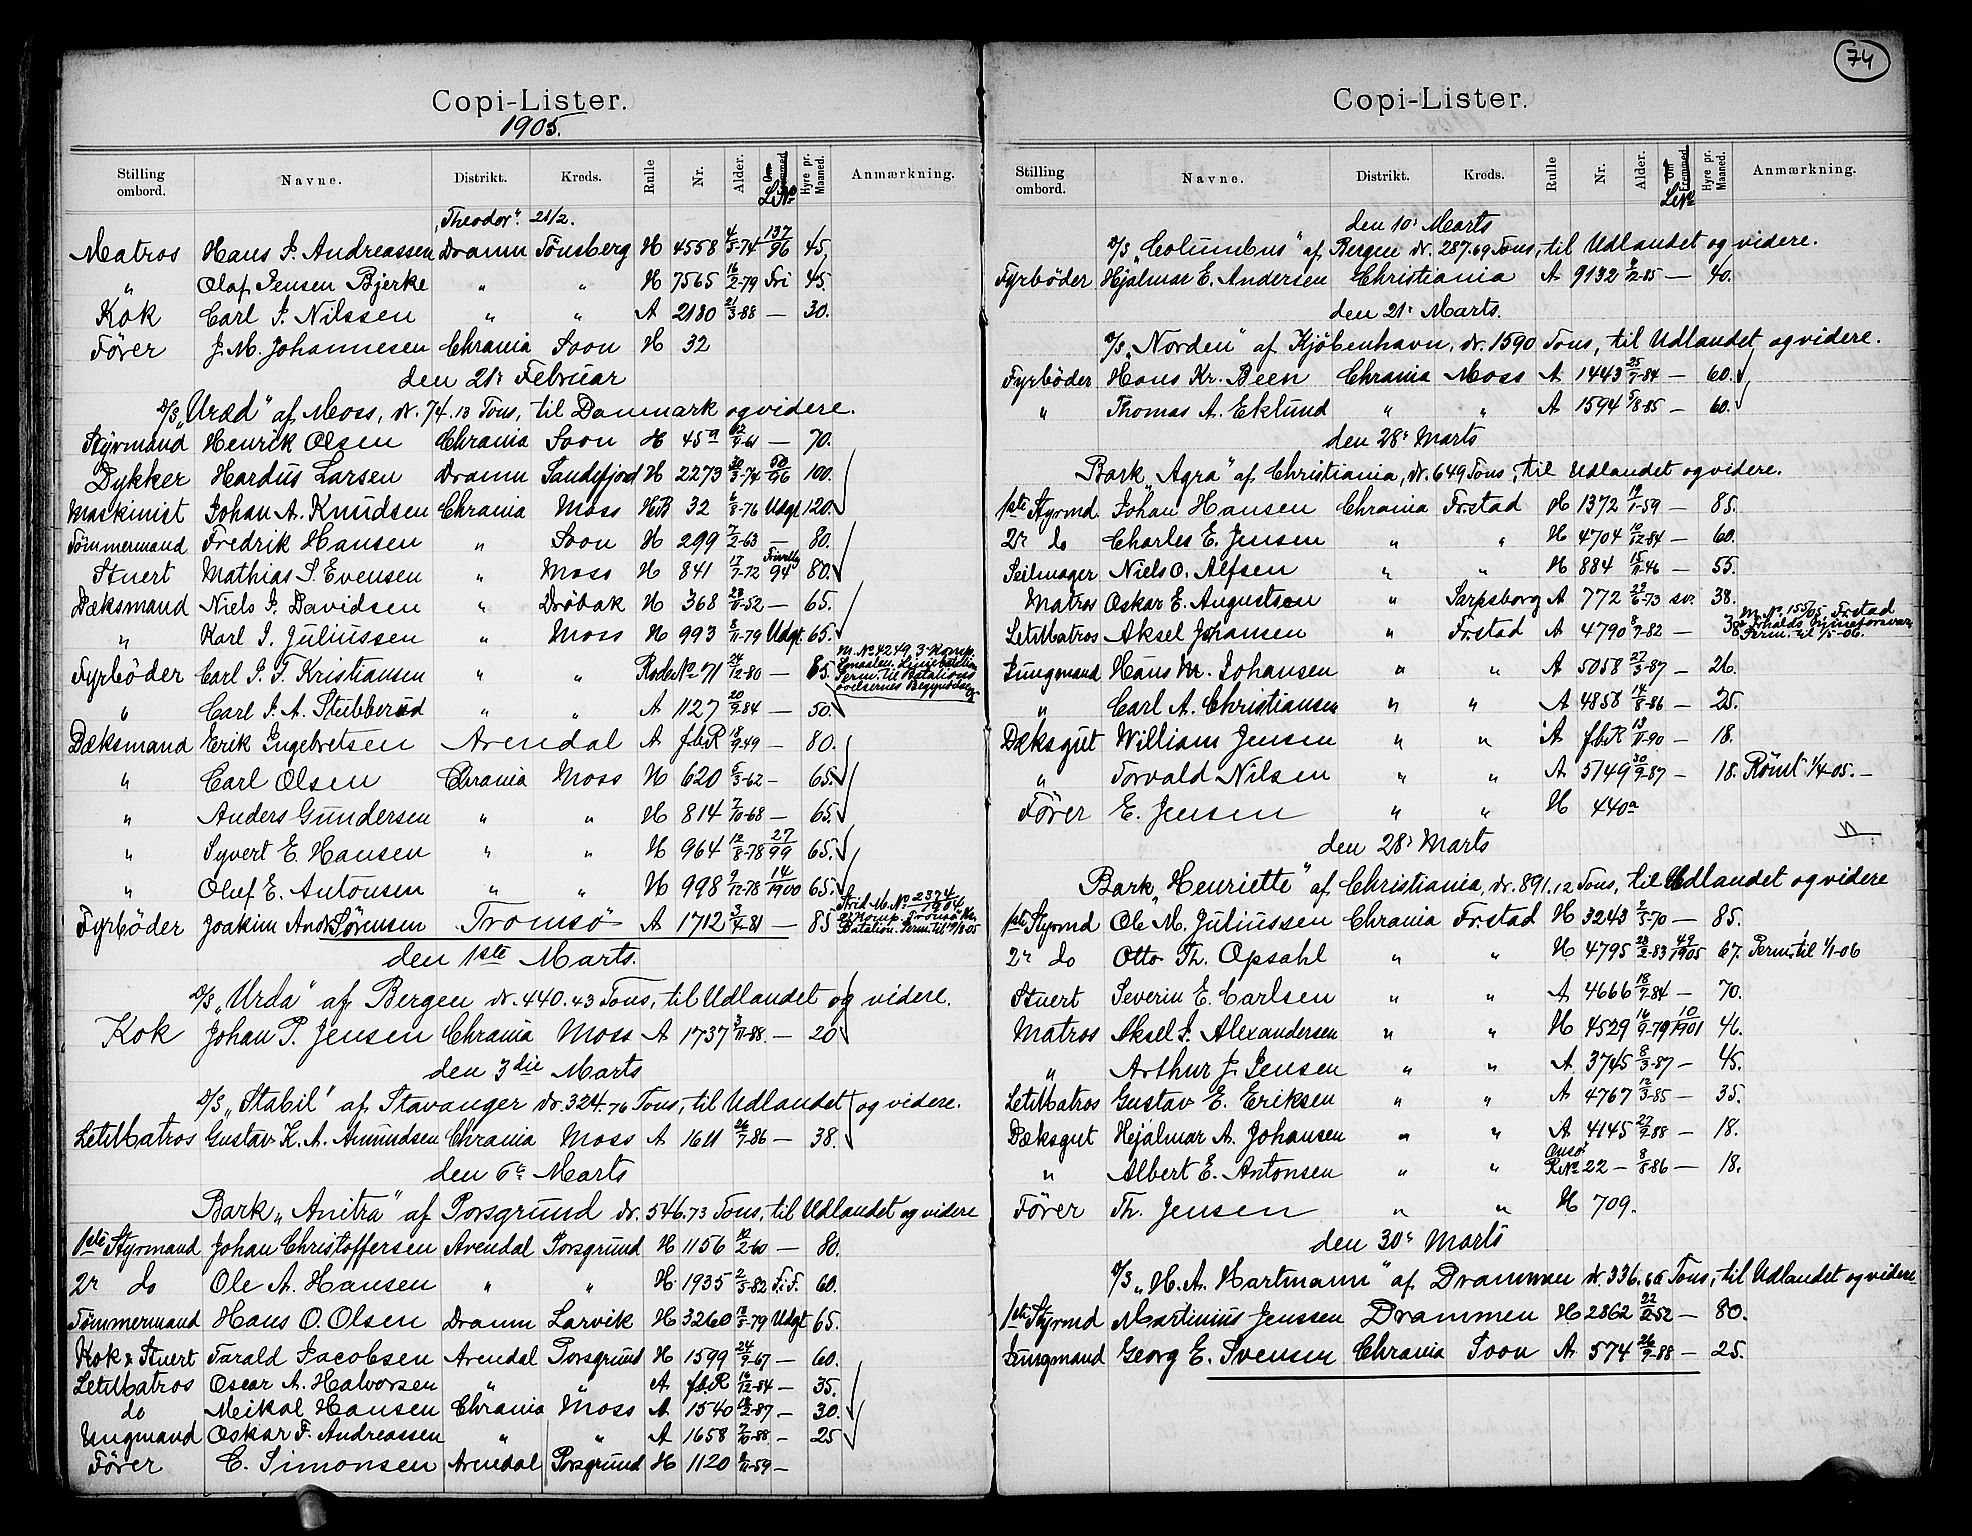 Copi-Lister.
1905.
Stilling ombord. Navne. Distrikt. Kreds. Rulle Nr. Alder. Om Fremmed. L.No Hyre pr. Maaned. Anmærkning.
„Theodor". 21/2.
Matros Hans J. Andreassen Dramn Tönsberg H 4558 4/5-74 137/96 45,
" Olaf Jensen Bjerke " " H 7565 16/2-79 Fri 45.
Kok Carl J. Nilssen " " A 2180 21/3-88 — 30.
Förer J. M. Johannesen Chrania Soon H 32
den 21r Februar
D/S „Uræd" af Moss, dr. 74.13 Tons, til Danmark og videre.
Styrmand Henrik Olsen Chrania Soon H 45a 12/9-61 — 70.
Dykker Hardus Larsen Dramn Sandefjord H 2273 30/3-74 50/96 100.
Maskinist Johan A. Knudsen Chrania Moss HB 32 6/8-76 Udgt 120.
Tömmermand Fredrik Hansen " Soon H 299 7/2-63 — 80.
Stuert Mathias S. Evensen " Moss H 841 17/7-72 Frivillg 94 80.
Dæksmand Niels J. Davidsen " Dröbak H 368 23/11-52 — 65.
" Karl J. Juliussen " Moss H 993 8/11-79 Udgt. 65.
Fyrböder Carl J. F. Kristiansen " " Rode No 71 24/12-80 — 85. M. No 4249, 3 Komp. Smaalen. Liniebatallion Perm. til Batalions övelsernes Begyndelse
" Carl J. A. Stubberud " " A 1127 20/9-84 — 50.
Dæksmand Erik Ingebretsen Arendal A f.b.R 18/9-49 — 80.
" Carl Olsen Chrania Moss H 620 5/3-62 — 65.
" Anders Gundersen " " H 814 7/10-68 — 65.
" Syvert E. Hansen " " H 964 12/8-78 27/99 65.
" Oluf E. Antonsen " " H 998 9/12-78 14/1900 65.
Fyrböder Joakim Andr Sörensen Tromsö A 1712 3/4-81 — 85 Strid M. No 2374/1904, 2 Komp. Tromsö Batalion. Perm. til 1/8-05
den 1ste Marts.
D/S „Urda" af Bergen dr. 440.43 Tons, til Udlandet og videre.
Kok Johan P. Jensen Chrania Moss A 1737 3/11-88. — 20
den 3die Marts
D/S „Stabil" af Stavanger dr. 324.76 Tons, til Udlandet og videre.
LetMatros Gustav K. A. Amundsen Chrania Moss A 1611 26/7-86 — 38.
den 6e Marts
Bark „Anitra" af Porsgrund dr. 546.73 Tons, til Udlandet og videre
1ste Styrmand Johan Christoffersen Arendal Porsgrund H 1156 12/2-60 — 80.
2r do Ole A. Hansen " " H. 1935 2/5-82 F.F. 60.
Tömmermand Hans O. Olsen Dramn Larvik H 3260 12/5-79 Udgt 65.
Kok & Stuert Tarald Jacobsen Arendal Porsgrund H 1599 24/9-67 — 60.
LetMatros Oscar A. Halvorsen " " A f.b.R 16/12-84 — 35.
do Meikal Hansen Chrania Moss A 1540 18/2-87 — 30.
Ungmand Oskar F. Andreassen " " A 1658 7/10-88. — 25
Förer C. Simonsen Arendal Porsgrund H 1120 2/11-59 —
74
Copi-Lister.
Stilling ombord. Navne. Distrikt. Kreds. Rulle Nr. Alder. Om Fremmed. L.No Hyre pr. Maaned. Anmærkning.
den 10r Marts
D/S „Columbus" af Bergen dr. 287.69 Tons, til Udlandet og videre.
Fyrböder Hjalmar E. Andersen Christiania A 9132 9/12-85 — 40.
den 21r Marts.
D/S „Norden" af Kjöbenhavn, dr. 1590 Tons, til Udlandet og videre.
Fyrböder Hans Kr. Been Chrania Moss A 1443 25/7-84 — 60.
" Thomas A. Eklund " " A 1594 5/8-85 — 60.
den 28r Marts
Bark „Agra" af Christiania, dr. 649 Tons, til Udlandet og videre.
1ste Styrmd. Johan Hansen Chrania Frstad H 1372 19/1-59 — 85.
2r do Charles E. Jensen " " H 4704 10/12-84 — 60.
Seilmager Niels O. Alfsen " " H 884 15/11-46 — 55.
Matros Oskar E. Augustson " Sarpsborg A 772 22/6-73 sv. 38.
LetMatros Aksel Johansen " Frstad A 4790 8/7-82 — 38 M. No 155/05 Frstad Perm. til 1/5-06.
Jungmand Hans M. Johansen " " A 5058 27/3-87 — 26.
" Carl A. Christiansen " " A 4858 14/8-86 — 25.
Dæksgut William Jensen " " A f.b.R 13/11-90 — 18.
" Torvald Nilsen " " A 5149 30/9-87 — 18. Römt 1/4-05. —
Förer E. Jensen " " H 440a
den 28r Marts
Bark „Henriette" af Christiania, dr. 891.12 Tons, til Udlandet og videre
1ste Styrmd Ole M. Juliussen Chrania Frstad H 3243 2/5-70 — 85.
2r do Otto Th. Opsahl " " H 4795 28/2-83 49/1905 67. Perm. til 1/1-06
Stuert Severin E. Carlsen " " A 4666 18/7-84 — 70.
Matros Aksel J. Alexandersen " " H 4529 16/9-79 10/1901 46.
" Arthur J. Jensen " " A 3745 8/3-87 — 45.
LetMatros Gustav E. Eriksen " " A 4767 12/3-85 — 35.
Dæksgut Hejalmar A. Johansen " " A 4145 27/9-88 — 18.
" Albert E. Antonsen " " Onsö R.No 22 — 8/8-86 — 18.
Förer Th. Jensen " " H 709.
den 30r Marts
D/S „H. A. Hartmann" af Drammen dr. 336.66 Tons, til Udlandet og videre
1ste Styrmd Martinius Jenssen Drammen H 2862 22/2-52 — 80.
Jungmand Georg E. Svensen Chrania Soon A 574 26/9-88 — 25.